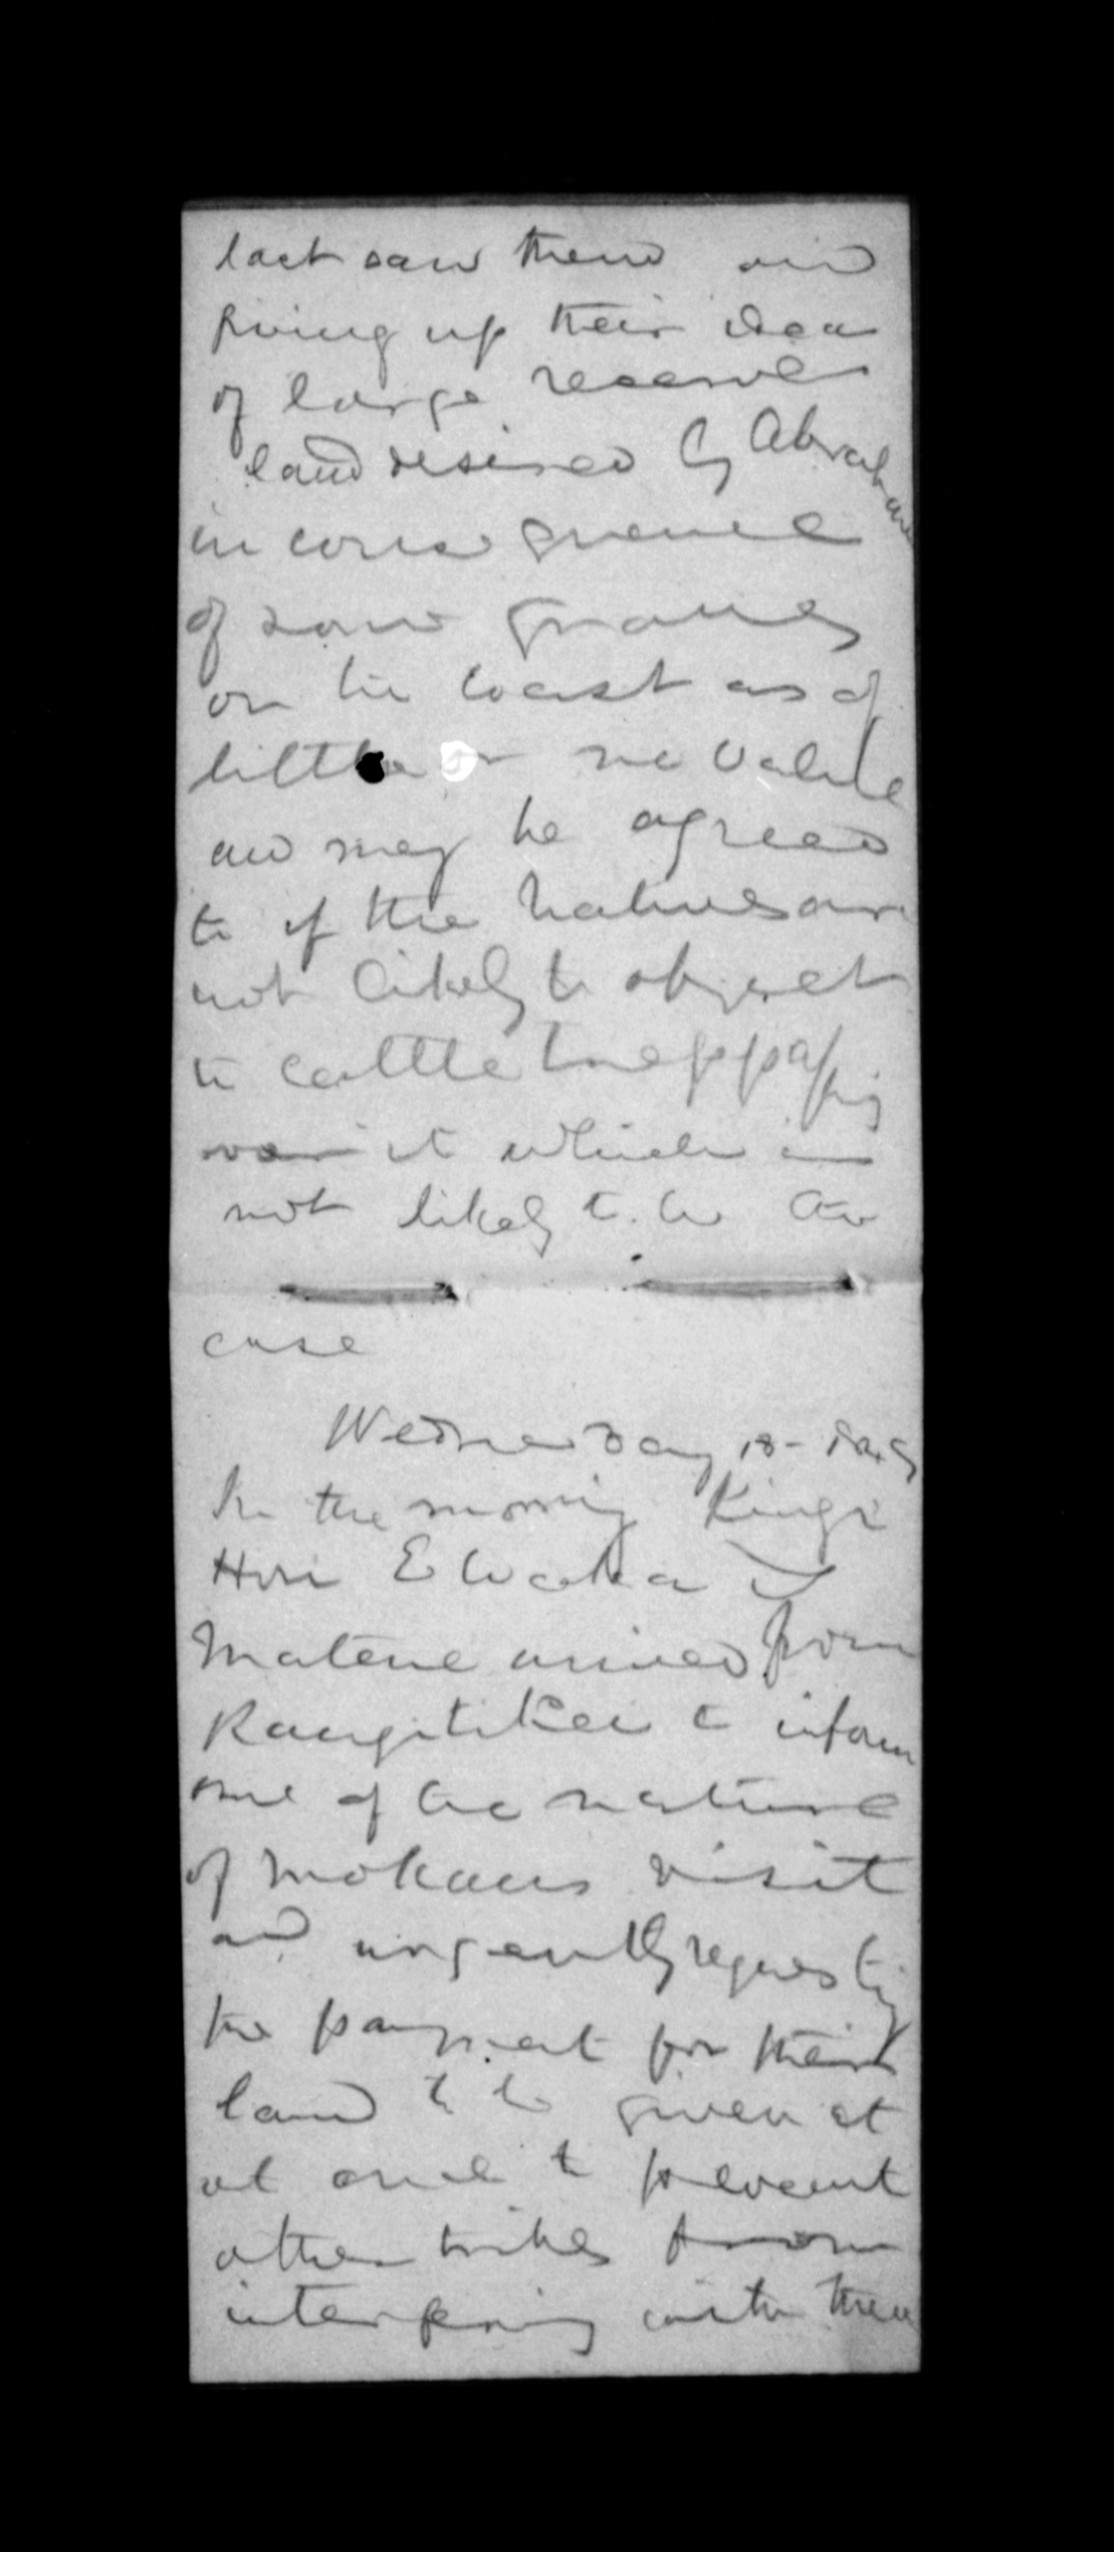 last saw them and
giving up their idea
of large reserves
land desired by Abraham
in consequence
of some graves
on the coast as of
little or no value
and may be agreed
to if the natives are
not likely to object
to cattle trespassing
it which is
not likely to be the
case
Wednesday
In the morning Kingi
Hori E Waka &
Matene arrived from
Rangitikei to inform
me of the nature
of Mokaus visit
and urgently requesting
the payment for their
land to be given at
at once to prevent
other tribes from
interfering with them